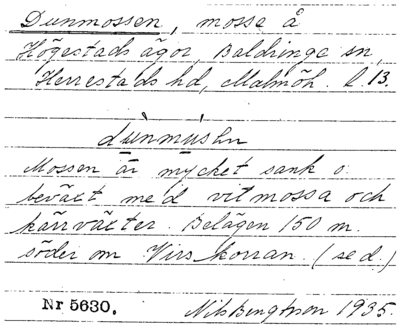 Dunmossen, mossa å
Högestads ägor, Baldringe sn,
Herrestads hd, Malmöh. l. 13.
dùnmúsṇ
Mossen är mycket sank o.
beväxt med vitmossa och
kärrväxter. Belägen 150 m.
söder om Virs korran. (se d.)
Nr 5630. Nils Bengtsson 1935.